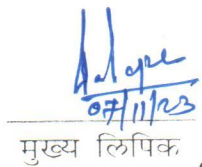 07/11/23
मुख्य लिपिक